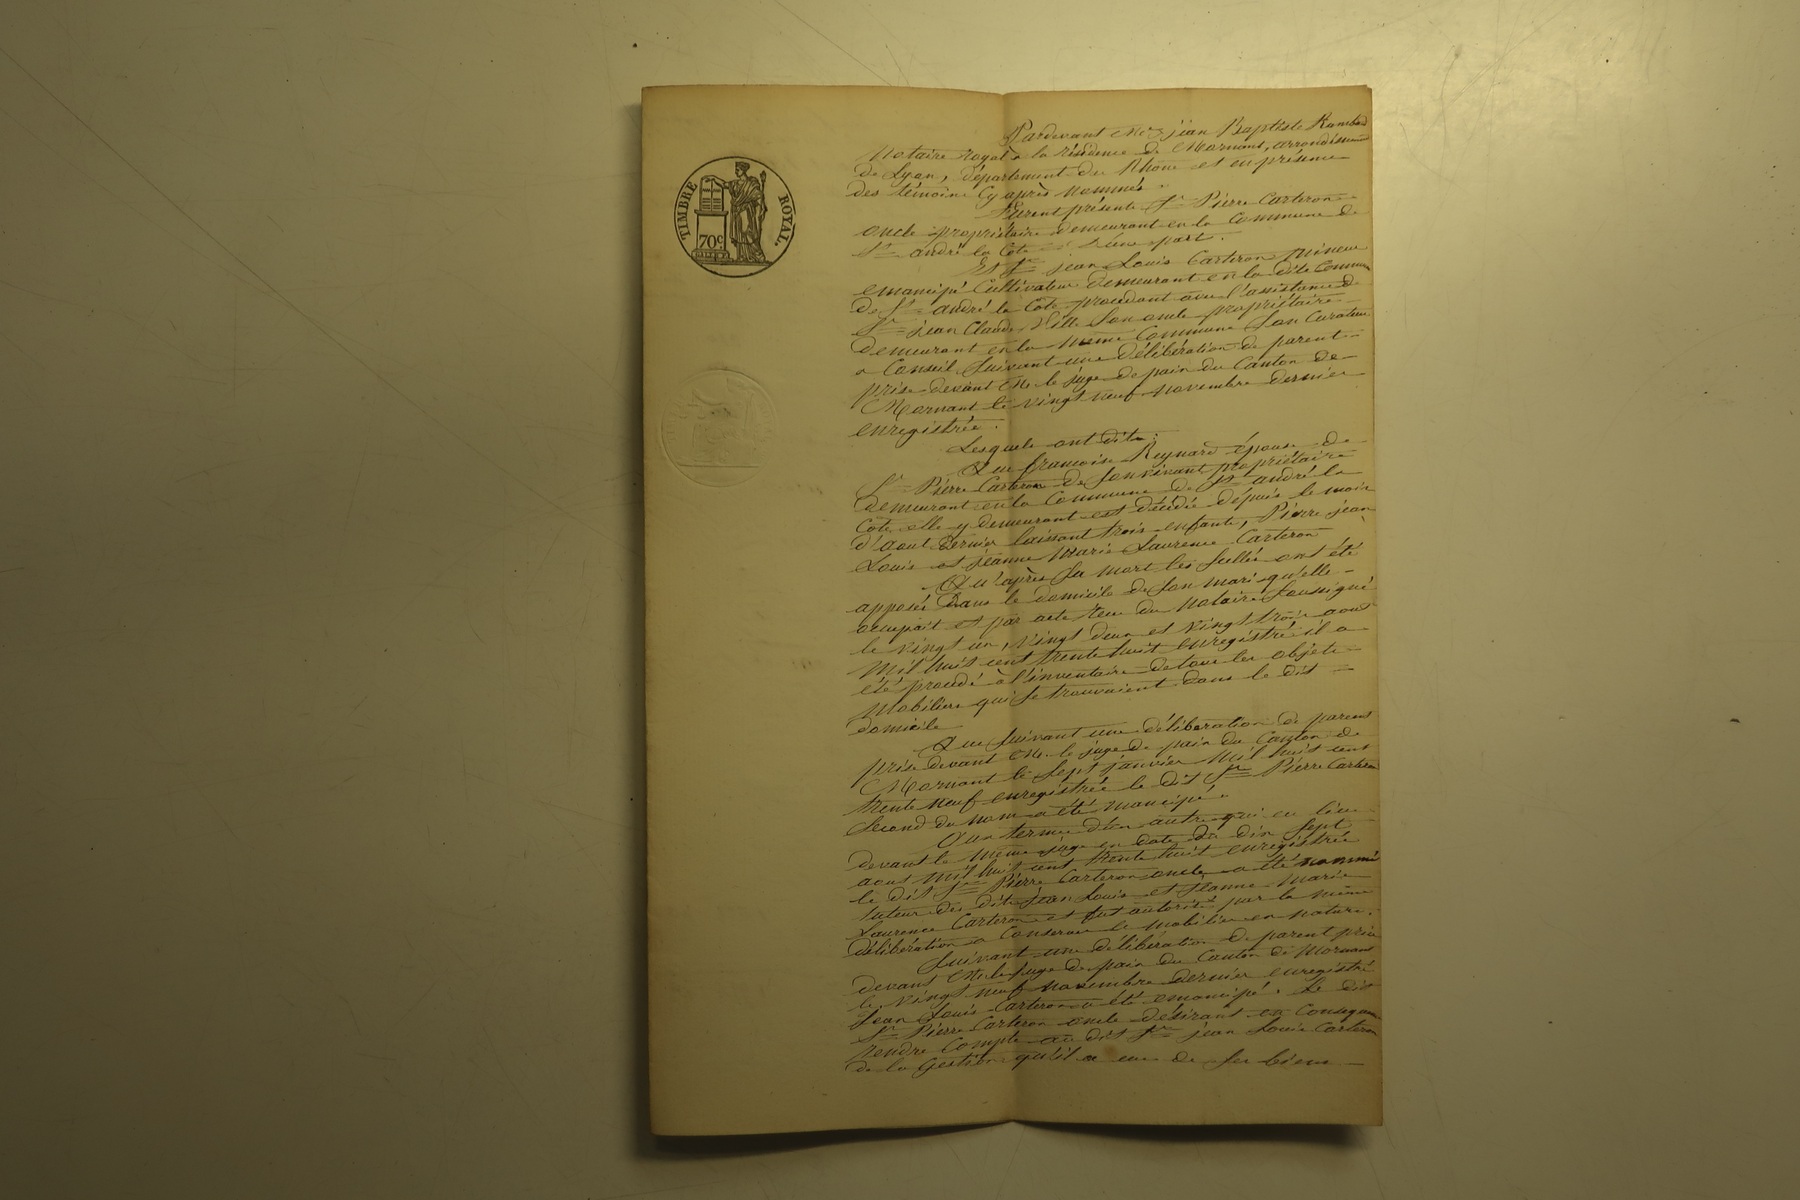 TIMBRE ROYAL.
70c
Pardevant Me jean Baptiste
Notaire royal à la résidence de Mornant, arrondissement
de Lyon, département du Rhône et en présence
des témoins Cy après nommés.
Furent présents Sr Pierre Carteron
oncle propriétaire demeurant en la Commune de
St andré la Cote d'une part.
Et Sr jean Louis Carteron mineur
emancipé Cultivateur demeurant en la dite Commune
de St andré la Cote procédant avec l'assistance de
Sr jean Claude son oncle propriétaire
demeurant en la même Commune son Curateur
a Conseil suivant une délibération de parent
prise devant Mr le juge de paix du Canton de
Mornant le vingt neuf novembre dernier
enregistrée.
Lesquels ont dit:
Que françoise Reynard épouse de
Sr Pierre Carteron de son vivant propriétaire
demeurant en la Commune de St andré la
Cote, elle y demeurant est décédée depuis le mois
d'aout dernier laissant trois enfants, Pierre, jean
Louis et jeanne Marie Laurence Carteron
Qu'après sa mort les scellés ont été
apposés dans le domicile de son mari qu'elle
occupait et par acte reçu du Notaire soussigné
le vingt un, vingt deux et vingt trois aout
mil huit cent trente huit enregistré il a
été procédé à l'inventaire de tous les objets
mobiliers qui se trouvaient dans le dit
domicile
Que suivant une délibération de parent
prise devant Mr le juge de paix du Canton de
Mornant le sept janvier mil huit cent
trente neuf enregistrée le dit Sr Pierre Carteron
second du nom a été émancipé.
Qu'au termes d'un autre qui eu lieu
devant le même juge en date du dix sept
aout mil huit cent trente huit enregistrée
le dit Sr Pierre Carteron oncle a été nommé
tuteur des dits jean Louis et jeanne Marie
Laurence Carteron et fut autorisé par la même
délibération a Conserver le mobilier en nature.
Suivant une délibération de parent prise
devant Mr le juge de paix du Canton de Mornant
le vingt neuf novembre dernier enregistré
Jean Louis Carteron a été émancipé. Le dit
Sr Pierre Carteron oncle désirant en Conséquence
rendre Compte au dit Sr jean Louis Carteron
de la Gestion qu'il a eue de ses biens